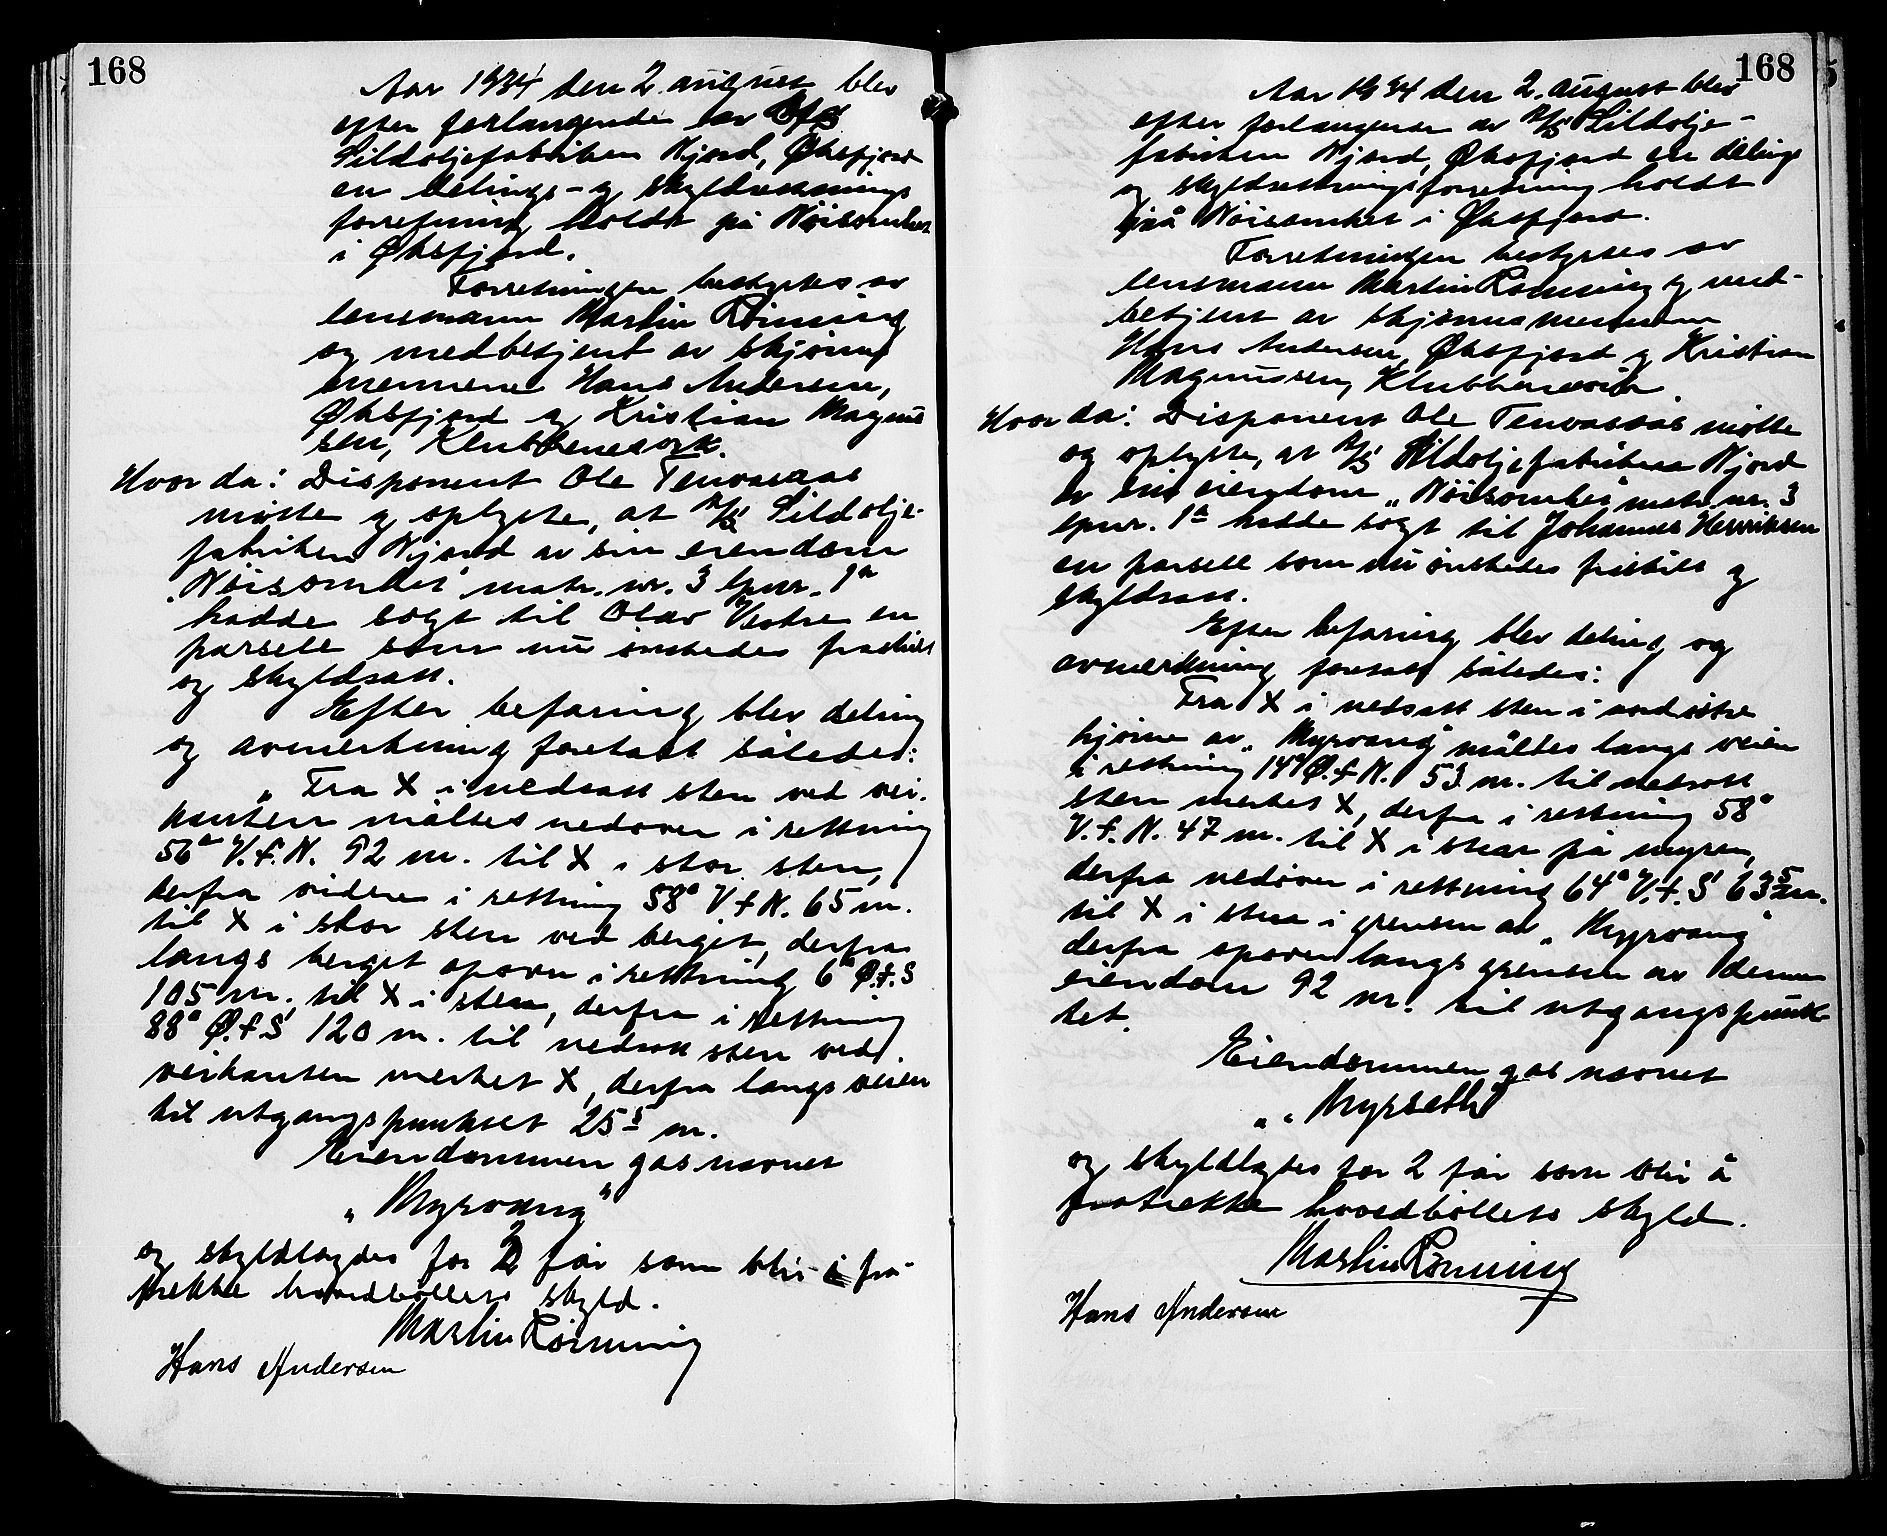 168
Aar 1934 den 2. august blev
efter forlangende av A/S
Sildoljefabriken Njord, Øksfjord
en delings- og skyldsetnings
forretning holdt på Nöisomhet
i Øksfjord.
Forretningen bestyrtes av
lensmann Martin Rönning
og medbetjent av skjönns
mennene Hans Andersen,
Øksfjord og Kristian Magnus
sen, Klubbenesvik.
Hvor da: Disponent Ole Tenvassaas
mötte og oplyste, at A/S Sildolje-
fabriken Njord av sin eiendom
"Nöisomhet" matr. nr. 3 lpnr. 1a
hadde solgt til Olav Vestre en
parsell som nu önskedes fraskilt
og skyldsatt.
Efter befaring blev deling
og avmerkning foretatt således:
"Fra X i nedsatt sten ved vei-
kanten måltes nedover i retning
56° V.f.N. 92 m. til X i stor sten,
derfra videre i retning 58° V.f.N. 65 m.
til X i stor sten ved berget, derfra
langs berget opover i retning 6° Ø.f.S
105 m. til X i sten, derfra i retning
88° Ø.f.S 120 m. til nedsatt sten ved
veikanten merket X, derfra langs veien
til utgangspunktet 25⁵ m.
Eiendommen gas navnet
"Myrvang"
og skyldlagdes for 2 før som blir å fra-
trekke hovedböllets skyld.
Martin Rönning
Hans Andersen
168
Aar 1934 den 2. august blev
efter forlangende av A/S Sildolje-
fabriken Njord, Øksfjord en delings
og skyldsetningsforretning holdt
på Nöisomhet i Øksfjord.
Forretningen bestyrtes av
lensmann Martin Rönning og med-
betjent av skjönnsmennene
Hans Andersen, Øksfjord og Kristian
Magnussen, Klubbenesvik.
Hvor da: Disponent Ole Tenvassaas mötte
og oplyste, at A/S Sildoljefabriken Njord
av sin eiendom "Nöisomhet" matr. nr. 3
lpnr. 1a hadde solgt til Johannes Henriksen
en parsell som nu önskedes fraskilt og
skyldsatt.
Efter befaring blev deling og
avmerkning foretatt således:
Fra X i nedsatt sten i nordöstre
hjörne av "Myrvang" måltes langs veien
i retning 14° Ø.f.N. 53 m. til nedsatt
sten merket X, derfra i retning 58°
V.f.N. 47 m. til X i sten på myren,
derfra nedover i retning 64° V.f.S 63⁵ m.
til X i sten i grensen av "Myrvang"
derfra opover langs grensen av denne
eiendom 92 m. til utgangspunk-
tet.
Eiendommen gas navnet
"Myrseth"
og skyldlagdes for 2 før som blir å
fratrekke hovedböllets skyld.
Martin Rönning
Hans Andersen